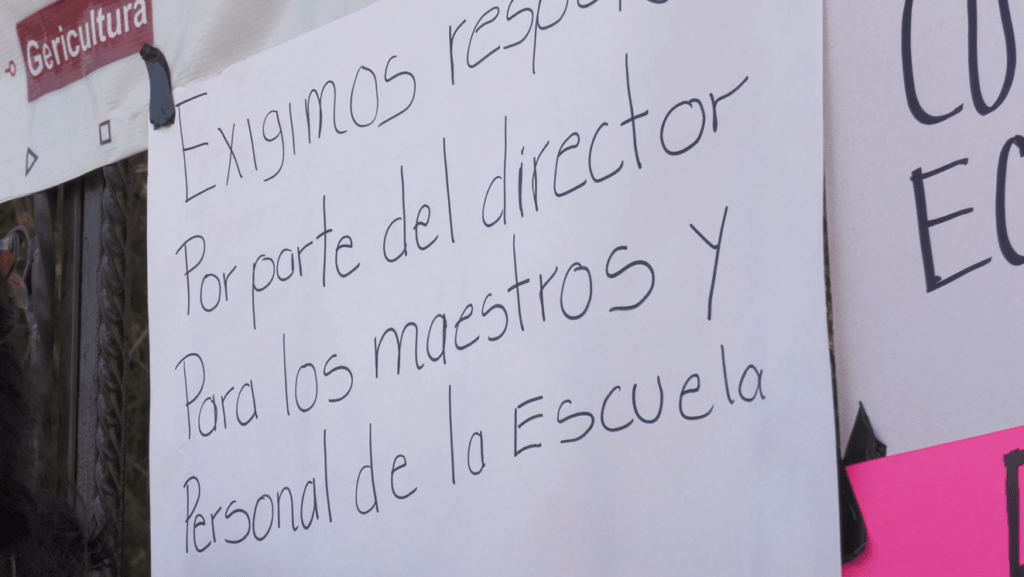 Gericultura
Exigimos
Por parte del director
Para los maestros y
Personal de la Escuela